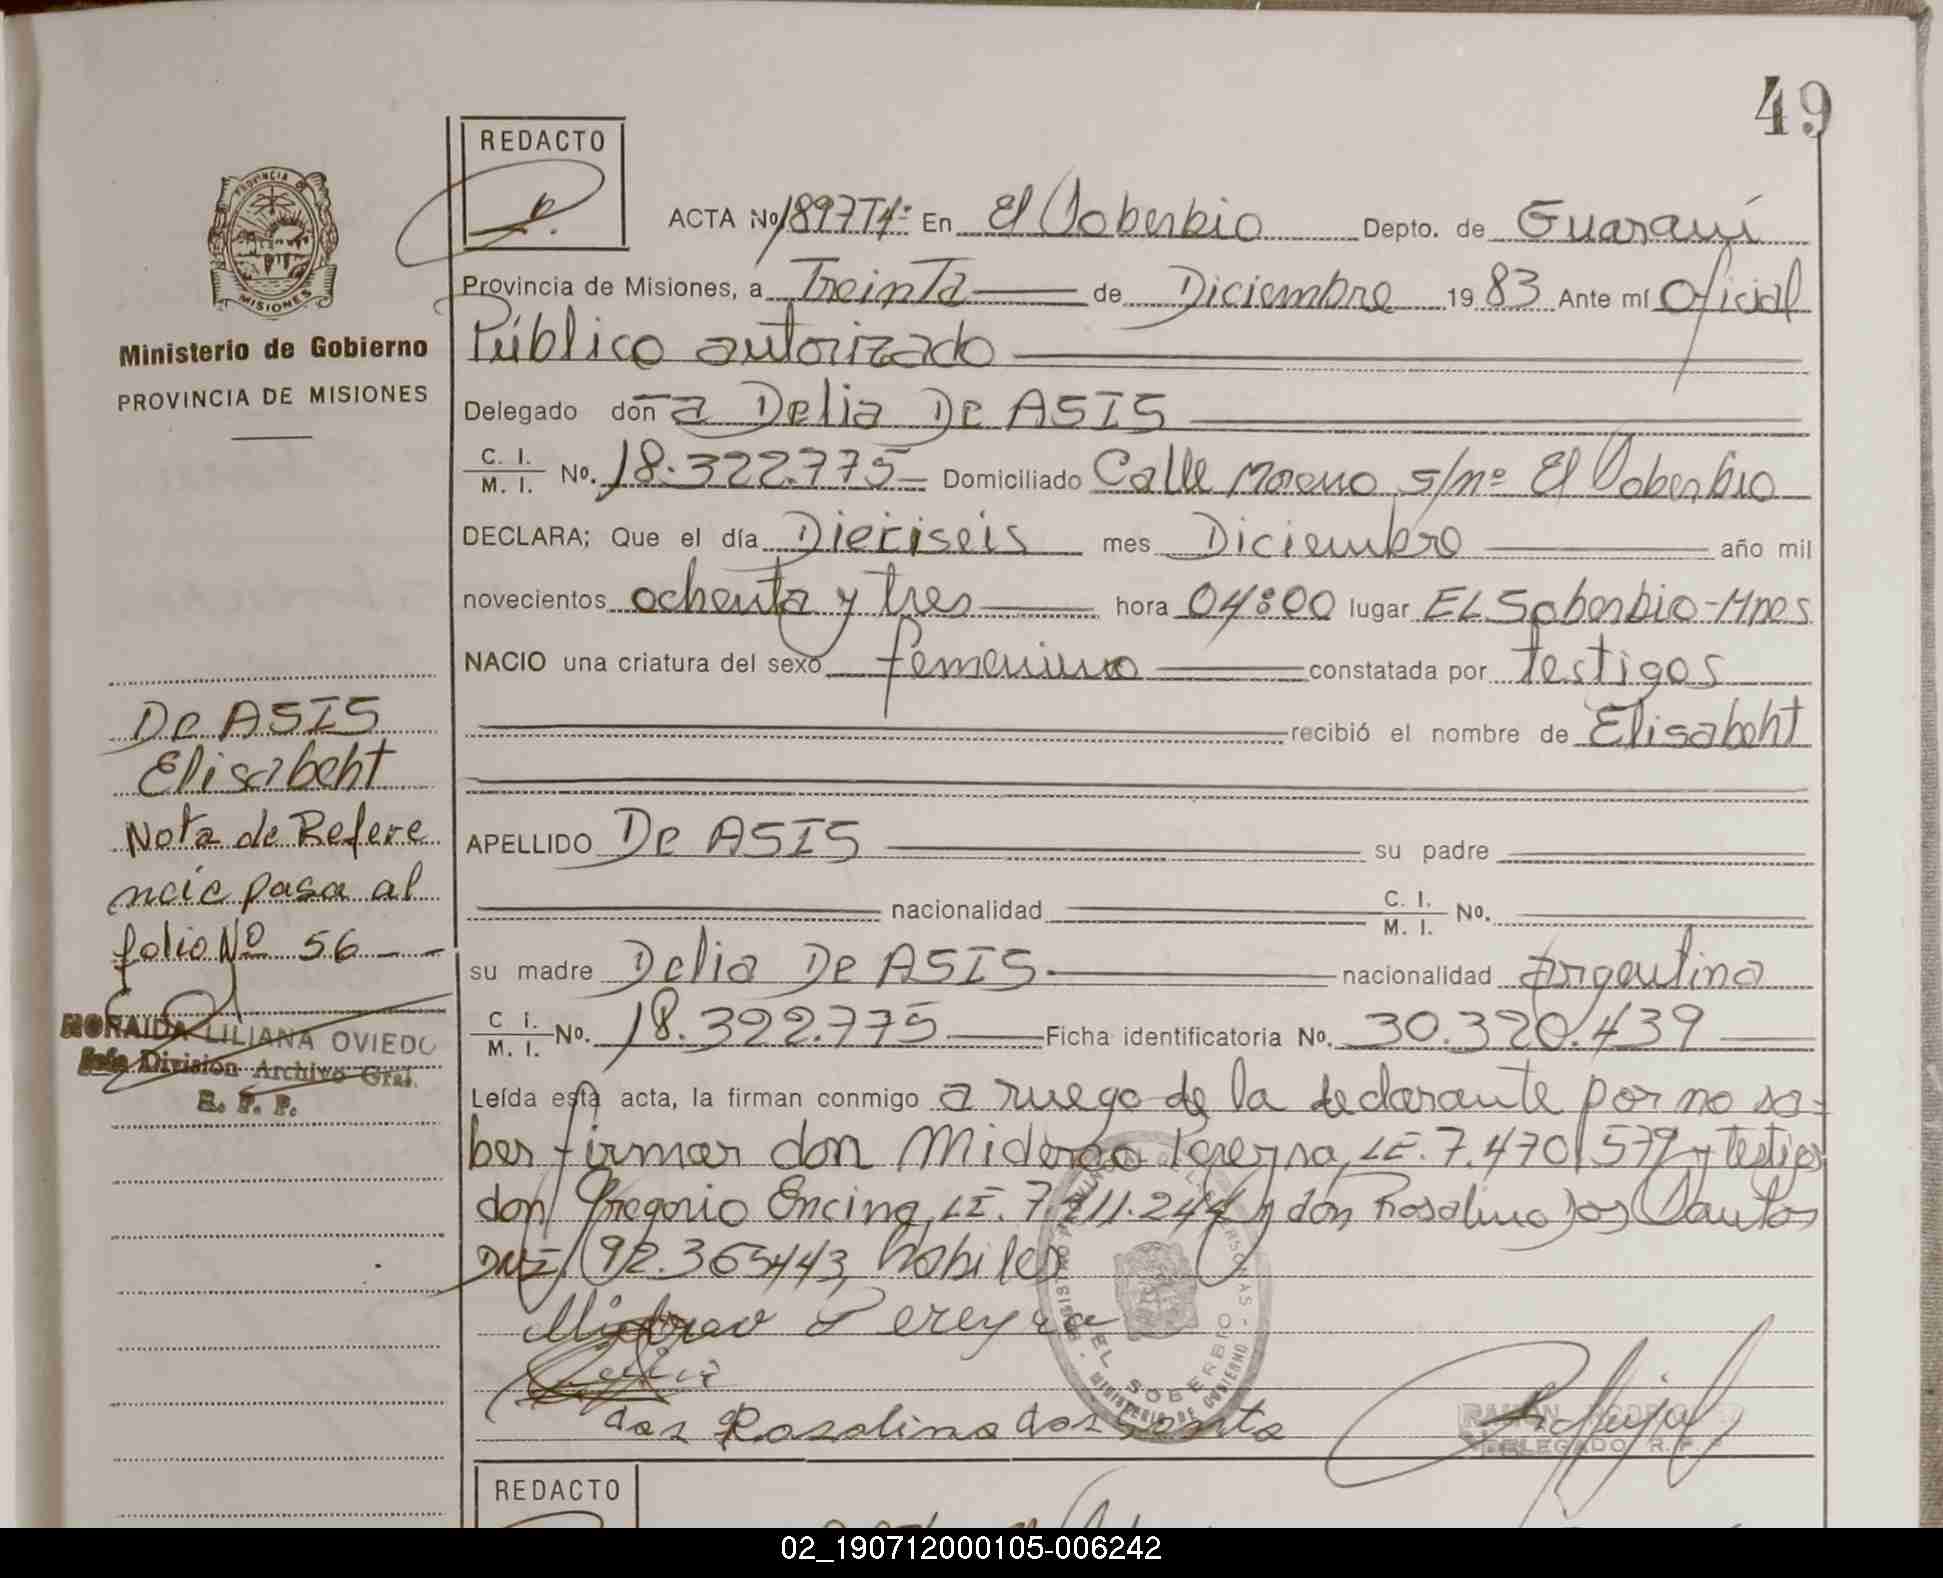 49
REDACTO
PROVINCIA DE
MISIONES
Ministerio de Gobierno
PROVINCIA DE MISIONES
ACTA Nº 1897T4º En El Soberbio Depto. de Guaraní
Provincia de Misiones, a Treinta de Diciembre 1983 Ante mí Oficial
Público autorizado
Delegado don a Delia De ASIS
C. I.
M. I. Nº. 18.322.775 Domiciliado Calle Moreno s/nº El Soberbio
DECLARA; Que el día Dieciseis mes Diciembre año mil
novecientos ochenta y tres hora 04:00 lugar EL Soberbio-Mnes
NACIO una criatura del sexo femenino constatada por testigos
recibió el nombre de Elisabeht
APELLIDO De ASIS su padre
nacionalidad C. I.
M. I. Nº.
su madre Delia De ASIS. nacionalidad Argentina
C I.
M. I. Nº. 18.322.775 Ficha identificatoria Nº. 30.320.439
Leída esta acta, la firman conmigo a ruego de la declarante por no sa-
ber firmar don Pereyra, LE. 7.470.579 y testigos
don Gregorio Encina, LE. 7.211.244 y don Rosalino dos Santos
DNI. 92.365443, habiles
Pereyra
dos Rosalino dos Santo
De ASIS
Elisabeht
Nota de Refere
ncie pasa al
folio Nº 56
NORAIDA LILIANA OVIEDO
Jefe División Archivo Gral.
R. P. P.
EL SOBERBIO
MINISTERIO DE GOBIERNO
RAMON
DELEGADO R. P.
REDACTO
02_190712000105-006242